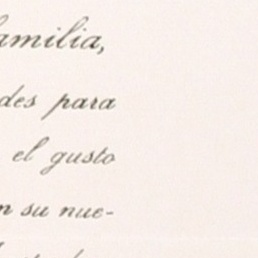 amilia,
des para
el gusto
n su nue-